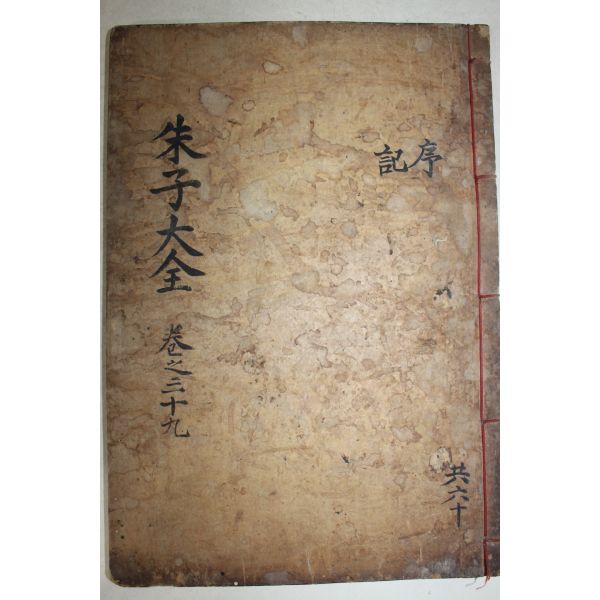 共六十
序
記
朱子大全
卷之三十九